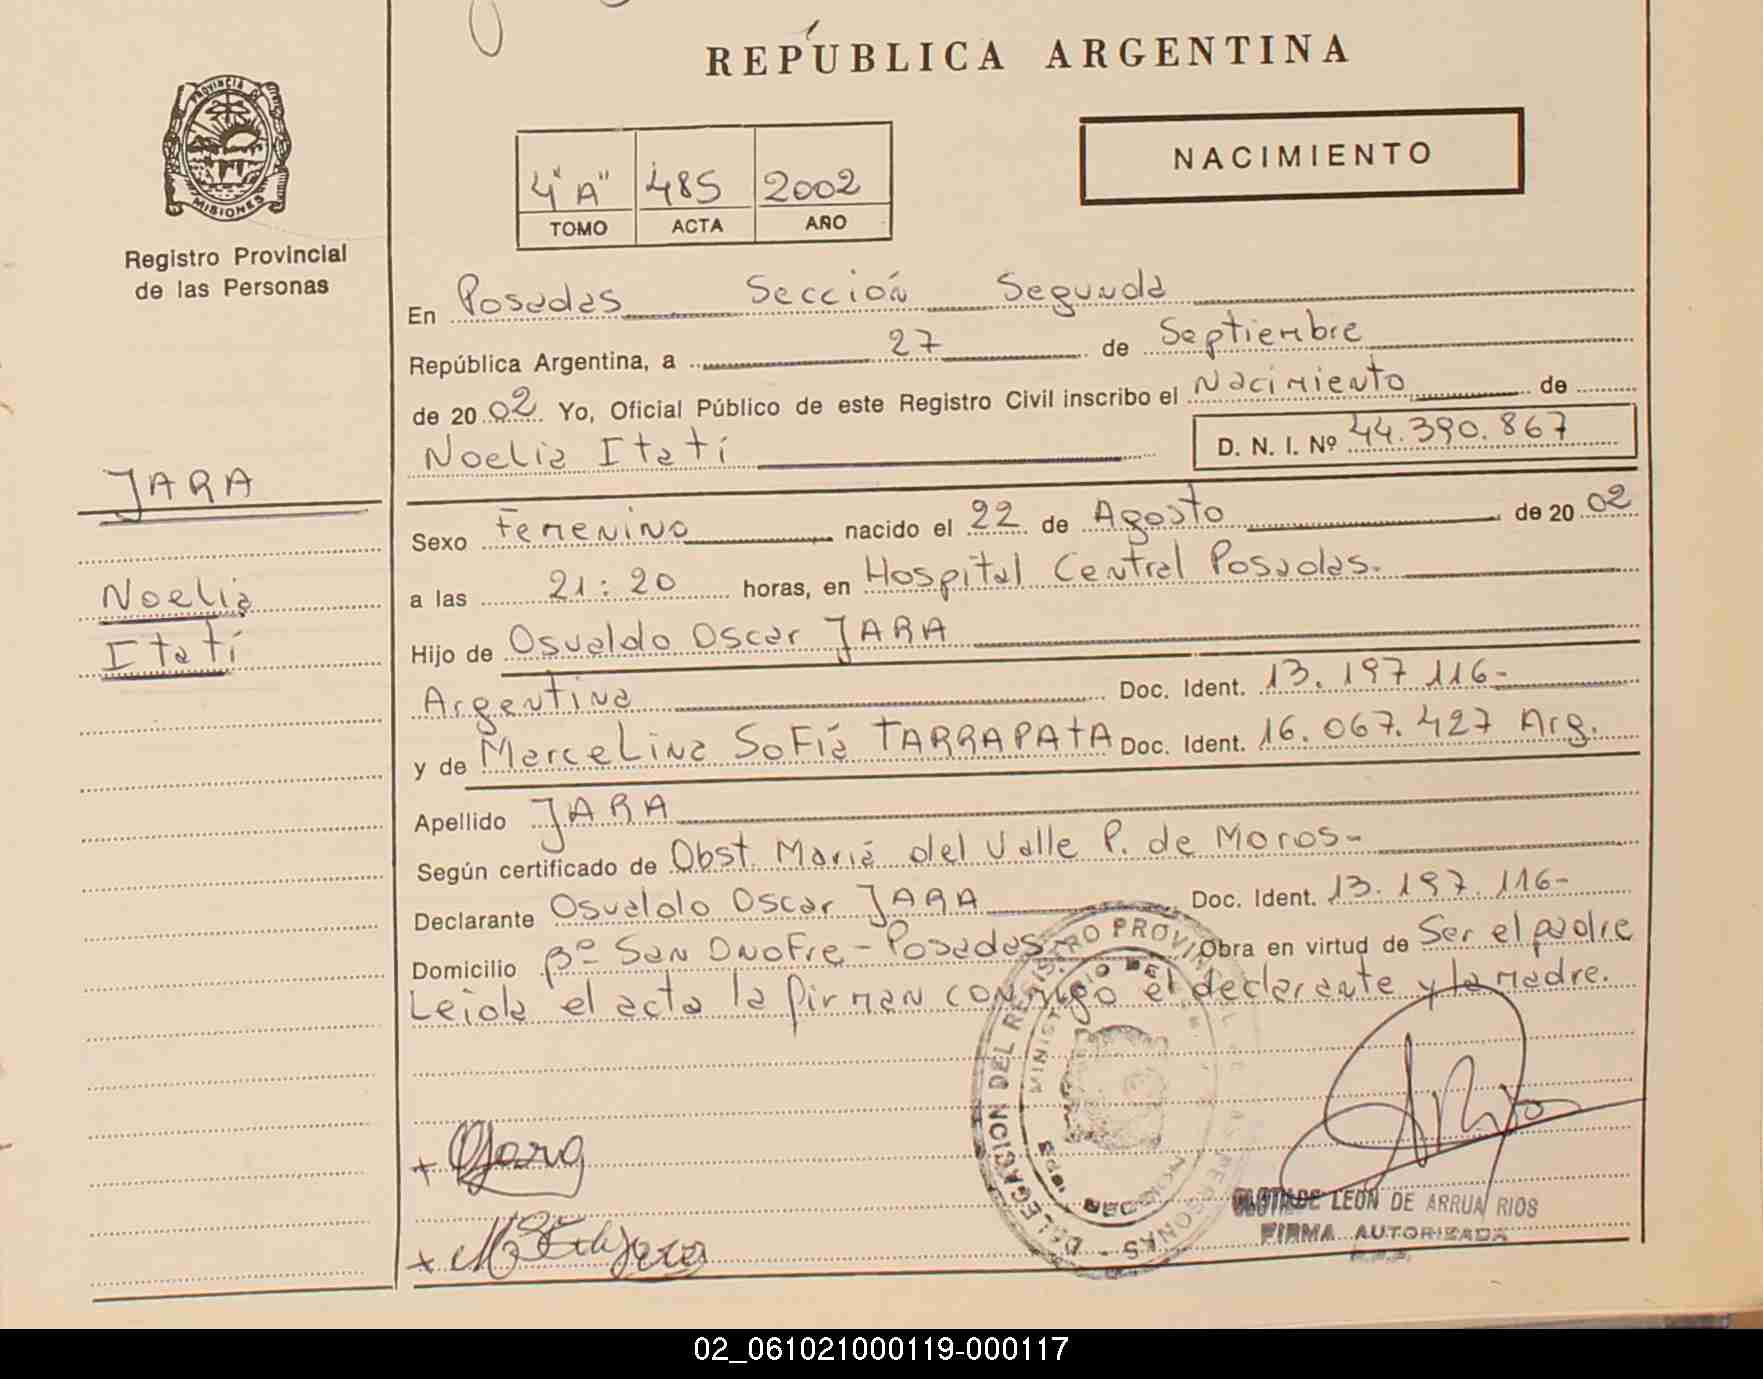 REPÚBLICA ARGENTINA
PROVINCIA DE
MISIONES
Registro Provincial
de las Personas
NACIMIENTO
4"A" 485 2002
TOMO ACTA AÑO
En Posadas Sección Segunda
República Argentina, a 27 de Septiembre
de 20 02. Yo, Oficial Público de este Registro Civil inscribo el Nacimiento de
Noelia Itatí D. N. I. Nº 44.390.867
JARA
Noelia
Itatí
Sexo Femenino nacido el 22 de Agosto de 20 02
a las 21:20 horas, en Hospital Central Posadas.
Hijo de Osvaldo Oscar JARA
Argentina Doc. Ident. 13.197.116-
y de Marcelina Sofía TARRAPATA Doc. Ident. 16.067.427 Arg.
Apellido JARA
Según certificado de Obst. María del Valle P. de Moros-
Declarante Osvaldo Oscar JARA Doc. Ident. 13.197.116-
Domicilio Bº San Onofre - Posadas Obra en virtud de Ser el padre
Leida el acta la firman conmigo el declarante y la madre.
DELEGACION DEL REGISTRO PROVINCIAL DE LAS PERSONAS
MINISTERIO DE
CLOTILDE LEON DE ARRUA RIOS
FIRMA AUTORIZADA
02_061021000119-000117